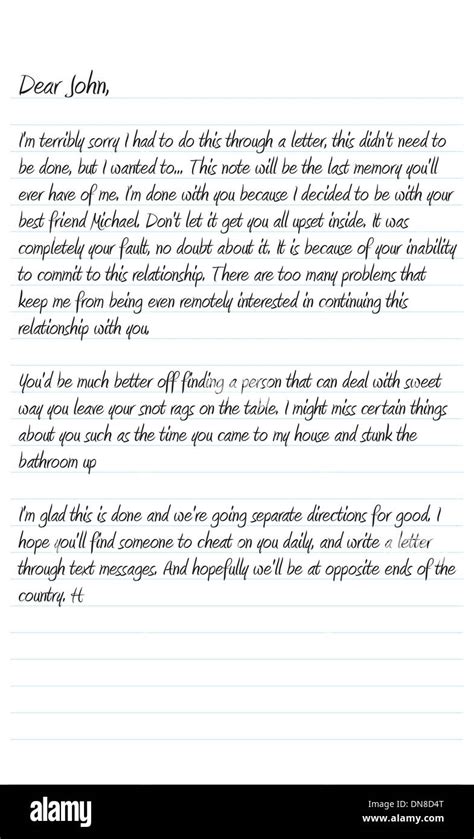 Dear John,
I'm terribly sorry I had to do this through a letter, this didn't need to
be done, but I wanted to... This note will be the last memory you'll
ever have of me. I'm done with you because I decided to be with your
best friend Michael. Don't let it get you all upset inside. It was
completely your fault, no doubt about it. It is because of your inability
to commit to this relationship. There are too many problems that
keep me from being even remotely interested in continuing this
relationship with you.
You'd be much better off finding a person that can deal with sweet
way you leave your snot rags on the table. I might miss certain things
about you such as the time you came to my house and stunk the
bathroom up
I'm glad this is done and we're going separate directions for good. I
hope you'll find someone to cheat on you daily, and write a letter
through text messages. And hopefully we'll be at opposite ends of the
country. H
alamy
Image ID: DN8D4T
www.alamy.com